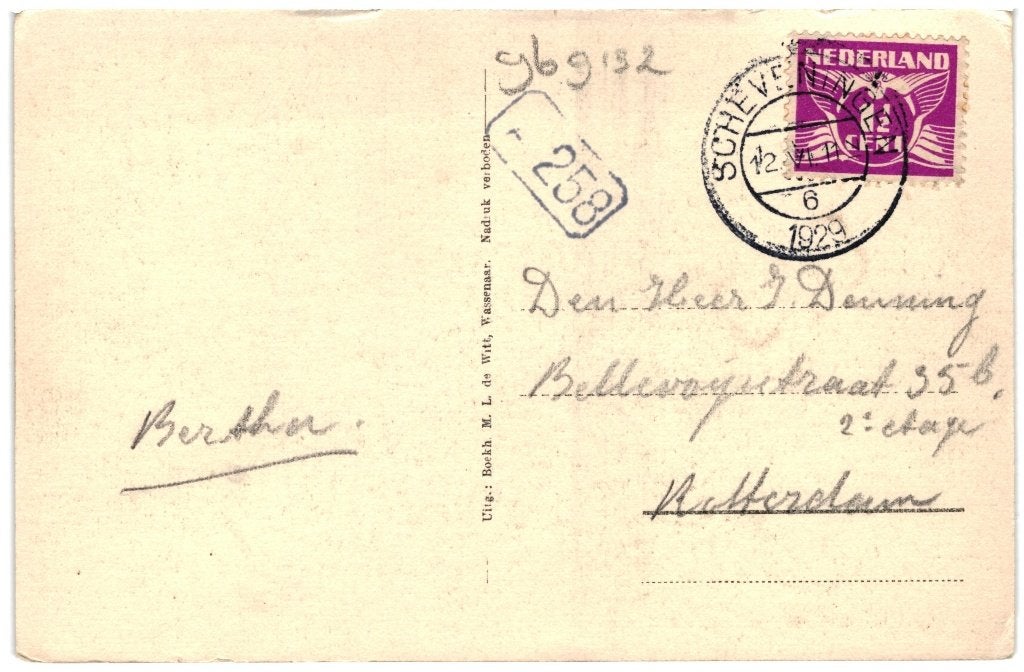 gbg132
258
NEDERLAND
½
CENT
SCHEVENINGEN
12.VI.11
6
1929
Uitg.: Boekh M. L. de Witt, Wassenaar. Nadruk verboden
Den Heer J. Denning
Bellevoijsstraat 35b.
2e etage
Rotterdam
Bertha.